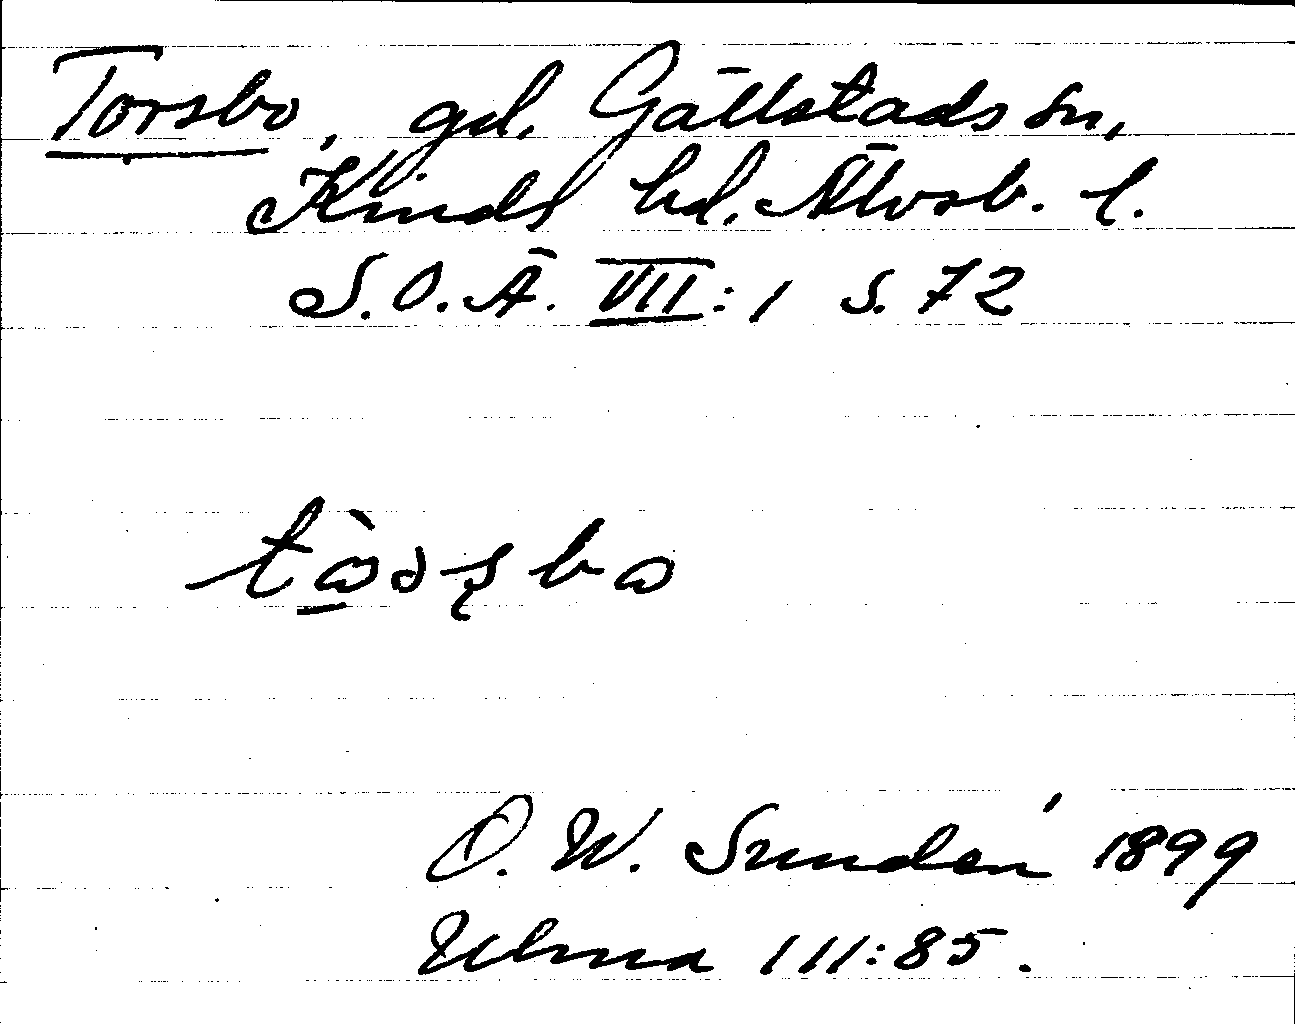 Torsbo, gd. Gällstads sn,
Kinds hd. Älvsb. l.
S.O.Ä. VII:1 s. 72
O. W. Sundén 1899
Ulma 111:85.